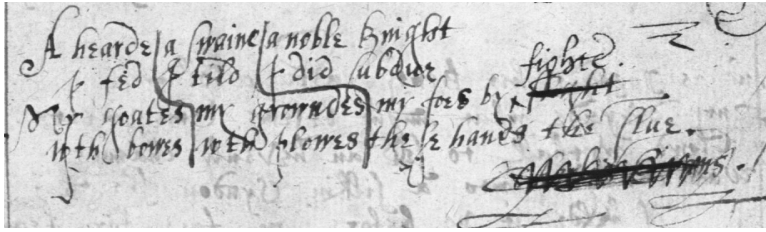 fighte.
A hearde a swaine a noble knight
I fed I tild I did subdue
My goates my growndes my foes by
wth bowes wth plowes these hands the slue.